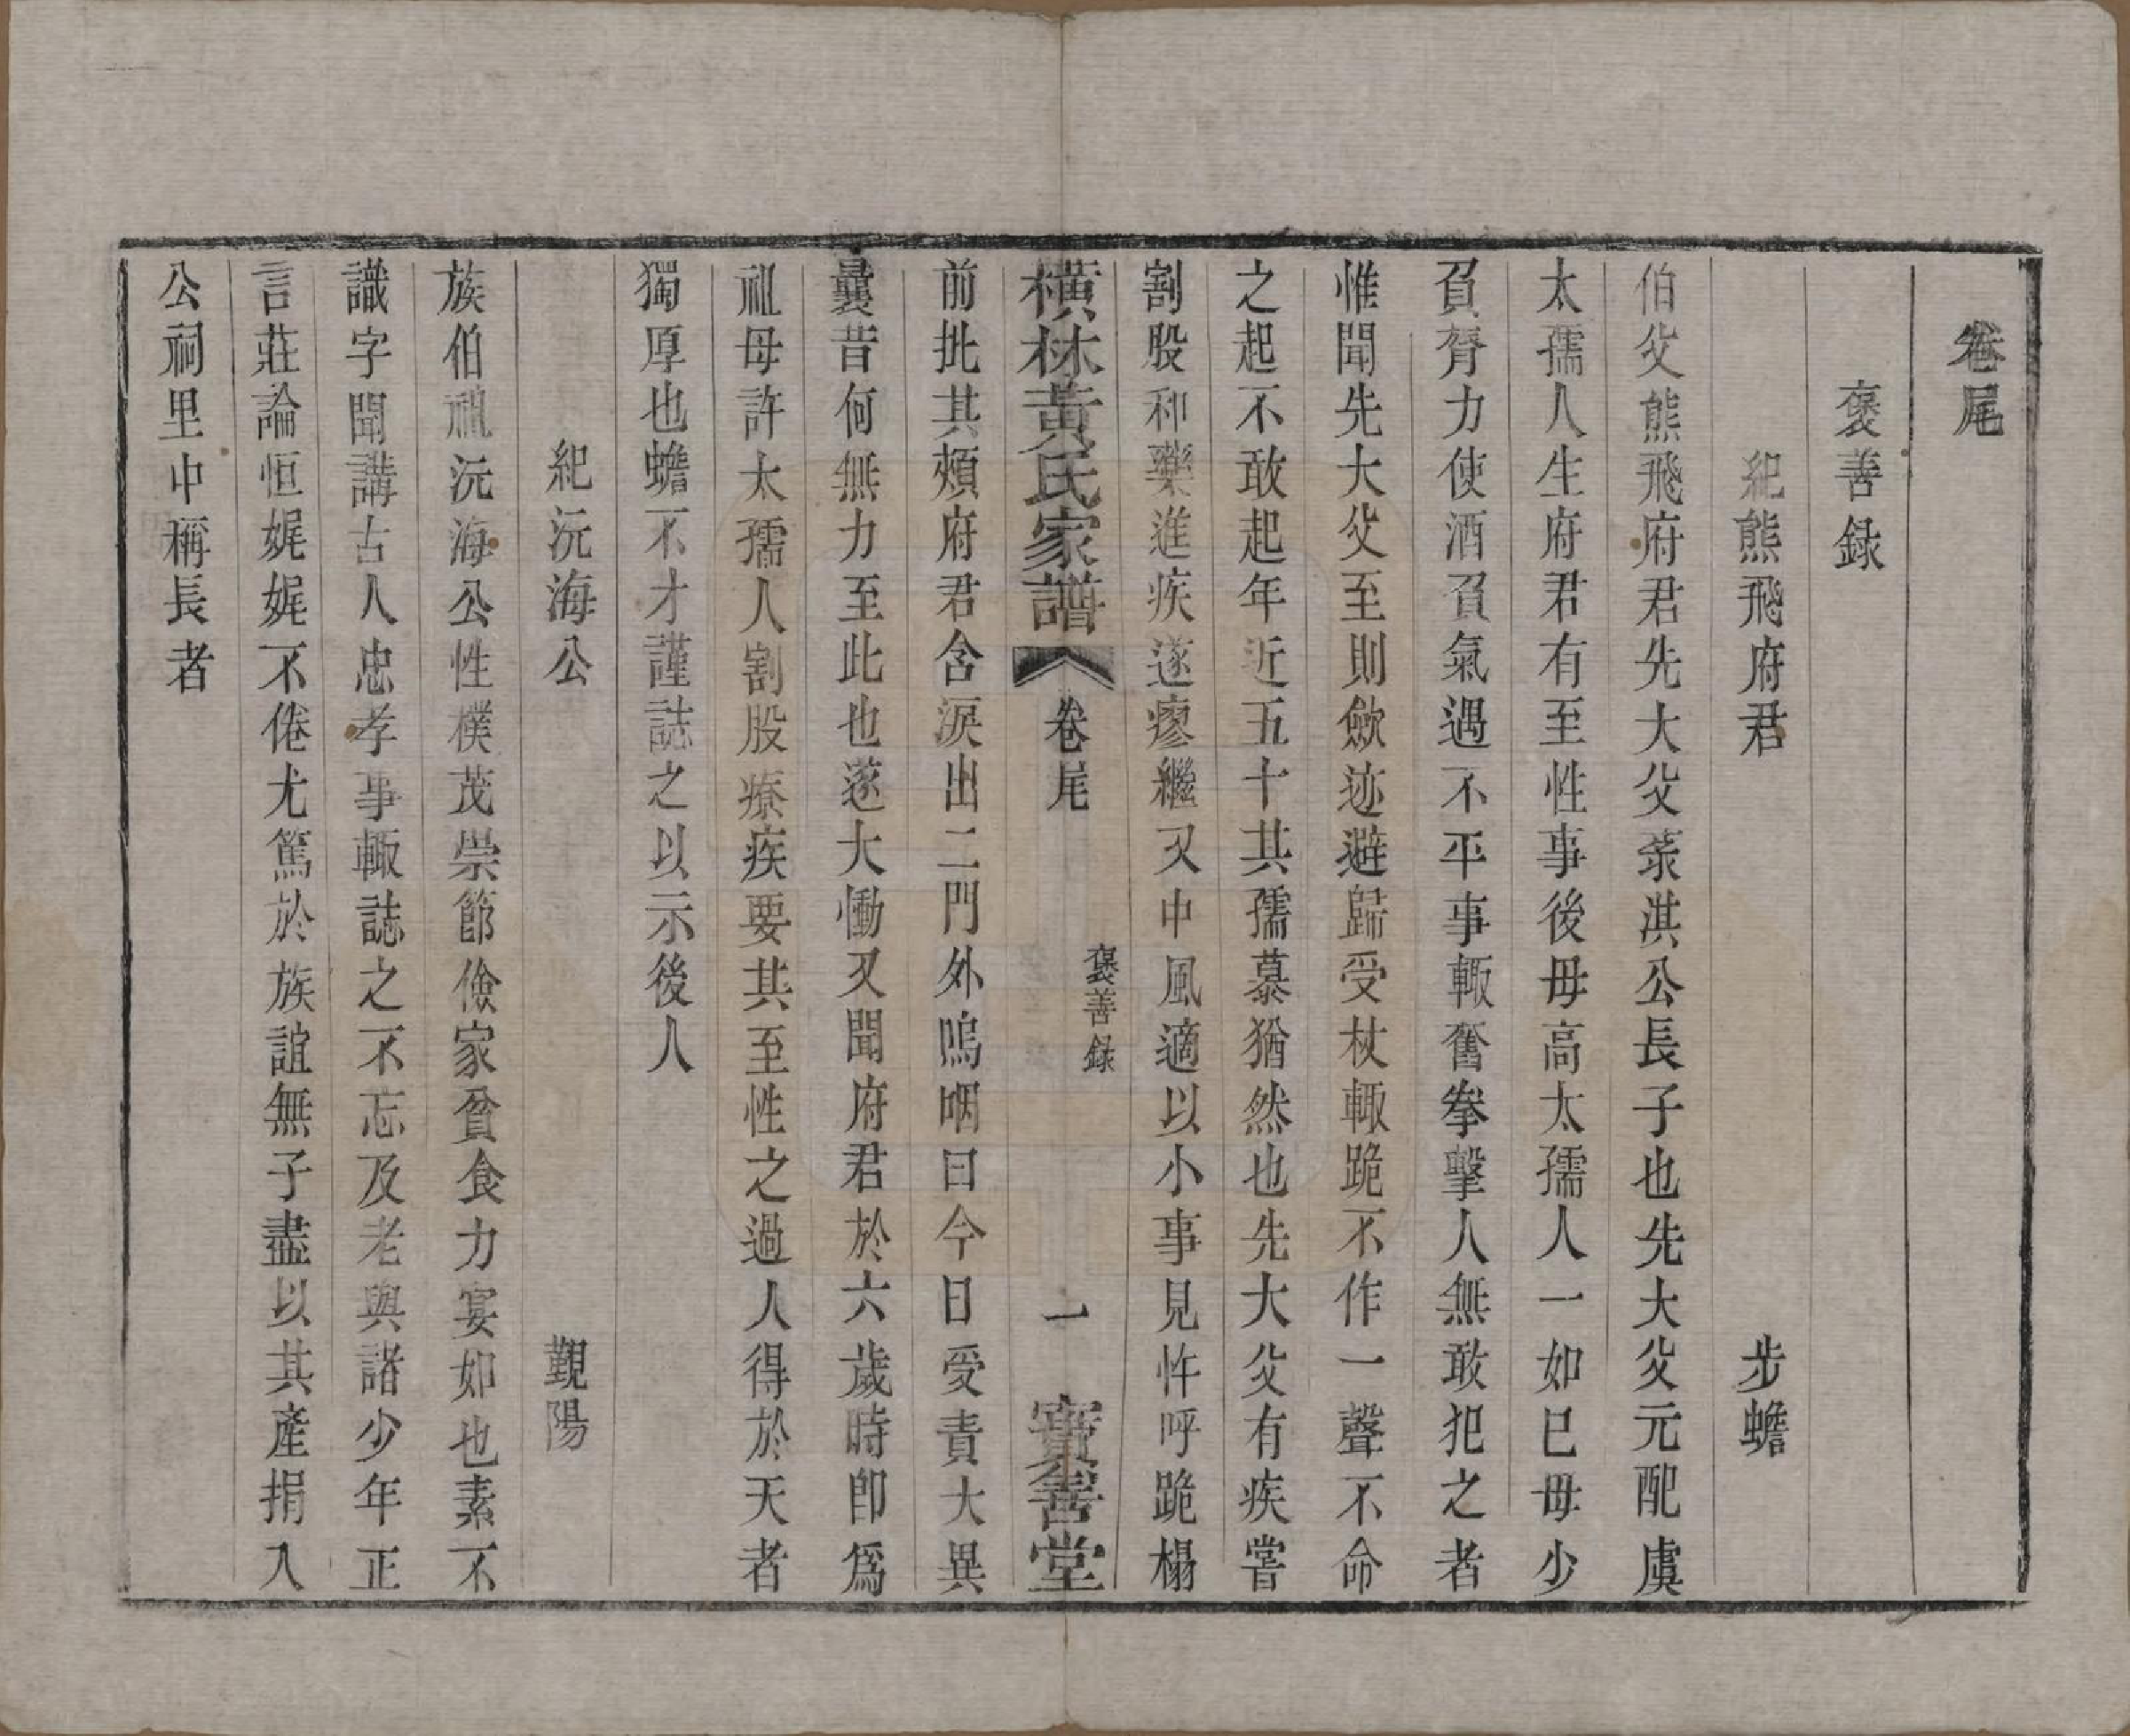 卷尾
褒善録
紀熊飛府君　步蟾
伯父熊飛府君先大父菉淇公長子也先大父元配虞
太孺人生府君有至性事後母高太孺人一如已母少
負膂力使酒負氣遇不平事輙奮拳擊人無敢犯之者
惟聞先大父至則歛迹避歸受杖輙跪不作一聲不命
之起不敢起年近五十其孺慕猶然也先大父有疾嘗
割股和藥進疾遂瘳繼又中風適以小事見忤呼跪榻
橫林黃氏家譜　卷尾　褒善録　一　寶善堂
前批其頰府君含淚出二門外嗚咽曰今日受責大異
曩昔何無力至此也遂大慟又聞府君於六歲時卽爲
祖母許太孺人割股療疾要其至性之過人得於天者
獨厚也蟾不才謹誌之以示後人
紀沅海公　覲陽
族伯祖沅海公性樸茂崇節儉家貧食力宴如也素不
識字聞講古人忠孝事輙誌之不忘及老與諸少年正
言莊論恒娓娓不倦尤篤於族誼無子盡以其產捐入
公祠里中稱長者